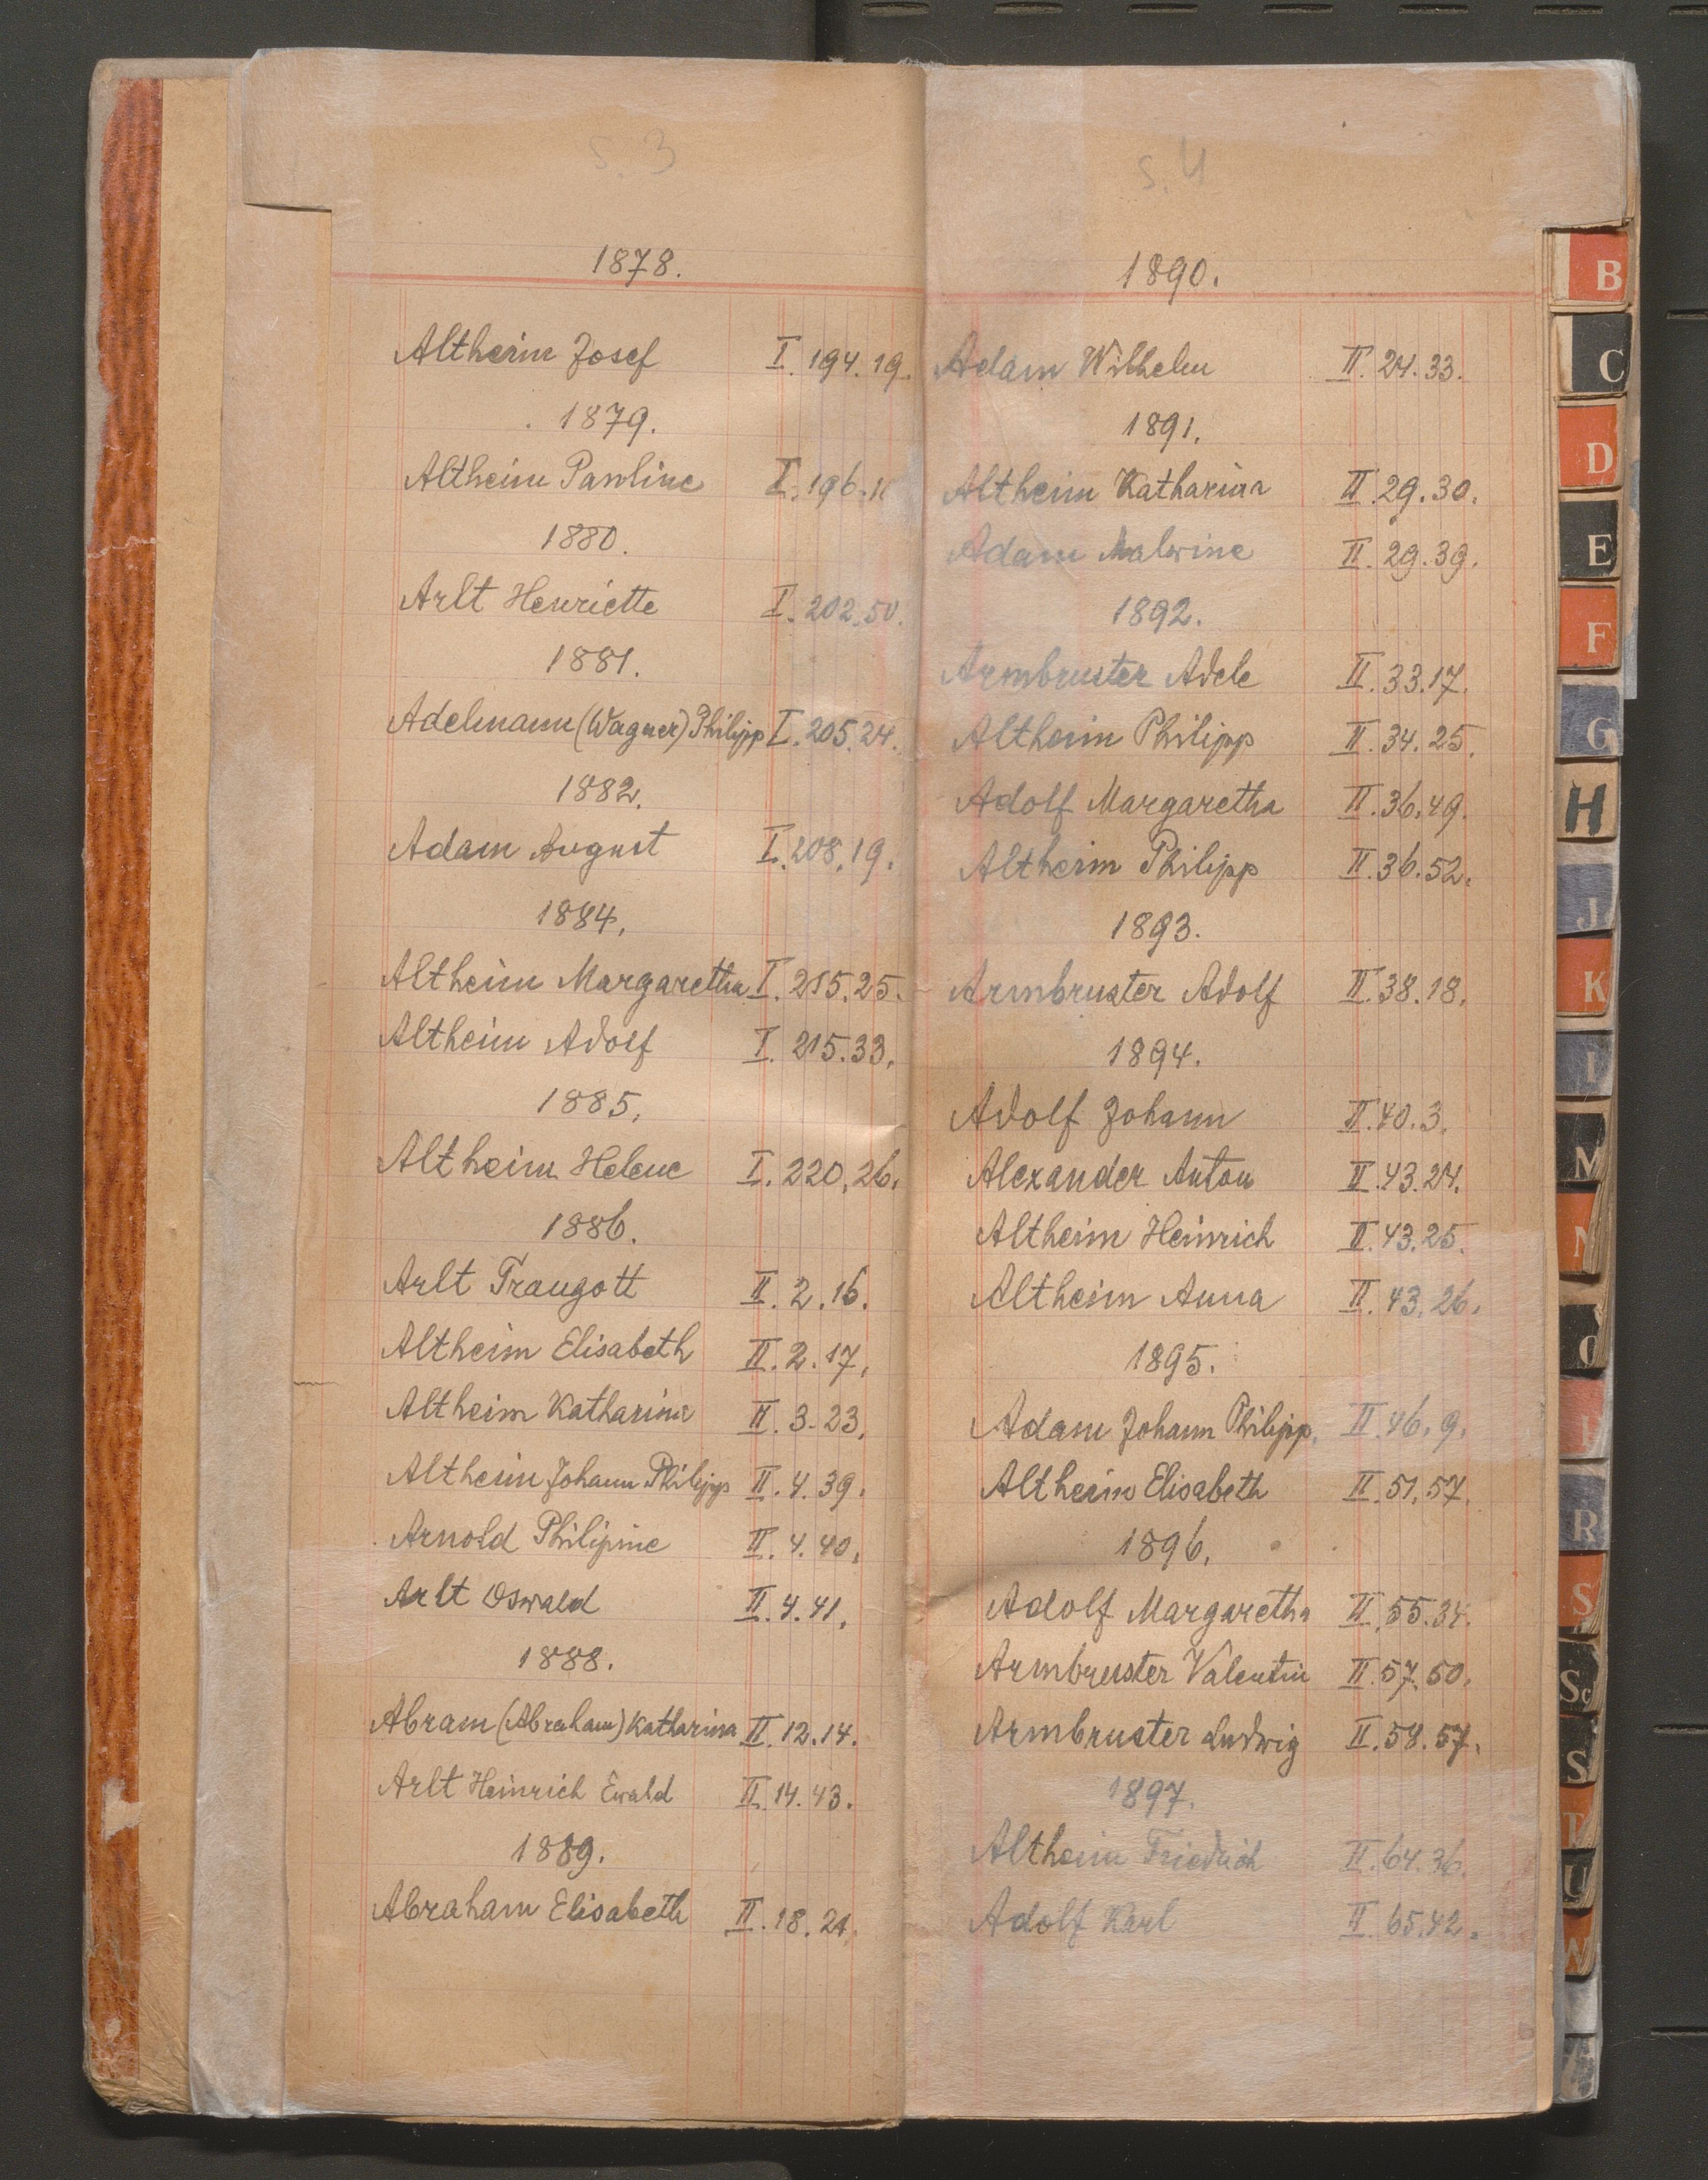 S. 3
1878.
Altheim Josef I. 194. 19.
1879.
Altheim Pauline I. 196. 1
1880.
Arlt Henriette I. 202. 50.
1881.
Adelmann (Wagner) Philipp I. 205. 24.
1882.
Adam August I. 208. 19.
1884.
Altheim Margaretha I. 215. 25.
Altheim Adolf I. 215. 33.
1885.
Altheim Helene I. 220. 26.
1886.
Arlt Traugott II. 2. 16.
Altheim Elisabeth II. 2. 17.
Altheim Katharina II. 3. 23.
Altheim Johann Philipp II. 4. 39.
Arnold Philipine II. 4. 40.
Arlt Oswald II. 4. 41.
1888.
Abram (Abraham) Katharina II. 12. 14.
Arlt Heinrich Ewald II. 14. 43.
1889.
Abraham Elisabeth II. 18. 21.
S. 4
1890.
Adam Wilhelm II. 24. 33.
1891.
Altheim Katharina II. 29. 30.
Adam Malwine II. 29. 39.
1892.
Armbruster Adele II. 33. 17.
Altheim Philipp II. 34. 25.
Adolf Margaretha II. 36. 49.
Altheim Philipp II. 36. 52.
1893.
Armbruster Adolf II. 38. 18.
1894.
Adolf Johann II. 40. 3.
Alexander Anton II. 43. 24.
Altheim Heinrich II. 43. 25.
Altheim Anna II. 43. 26.
1895.
Adam Johann Philipp. II. 46. 9.
Altheim Elisabeth II. 51. 57.
1896.
Adolf Margaretha II. 55. 34.
Armbruster Valentin II. 57. 50.
Armbruster Ludwig II. 58. 57.
1897.
Altheim Friedrich II. 64. 36.
Adolf Karl II. 65. 42.
B
C
D
E
F
G
H
J
K
M
N
O
R
S
Sc
S
T
U
W